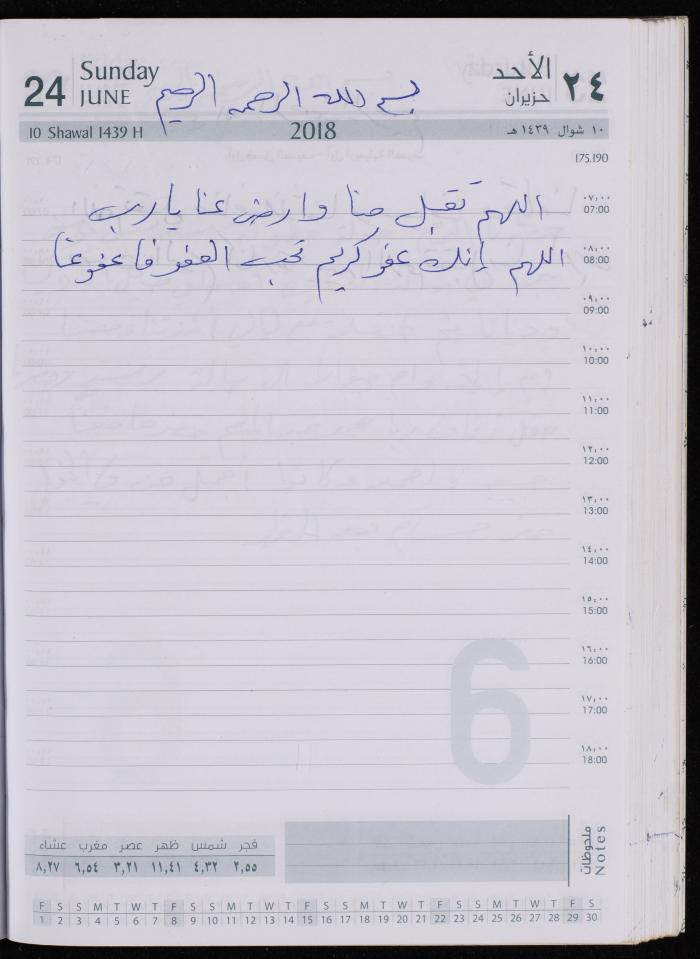 24 Sunday JUNE
الأحد ٢٤ حزيران
بسم الله الرحمن الرحيم
10 Shawal 1439 H 2018 ١٠ شوال ١٤٣٩ هـ
175.190
٠٧:٠٠
07:00
اللهم تقبل منا وارض عنا يارب
٠٨:٠٠
08:00
اللهم إنك عفو كريم تحب العفو فاعفو عنا
٠٩:٠٠
09:00
١٠:٠٠
10:00
١١:٠٠
11:00
١٢:٠٠
12:00
١٣:٠٠
13:00
١٤:٠٠
14:00
١٥:٠٠
15:00
١٦:٠٠
16:00
١٧:٠٠
17:00
١٨:٠٠
18:00
6
ملحوظات
Notes
فجر شمس ظهر عصر مغرب عشاء
٢,٥٥ ٤,٣٢ ١١,٤١ ٣,٢١ ٦,٥٤ ٨,٢٧
F S S M T W T F S S M T W T F S S M T W T F S S M T W T F S
1 2 3 4 5 6 7 8 9 10 11 12 13 14 15 16 17 18 19 20 21 22 23 24 25 26 27 28 29 30